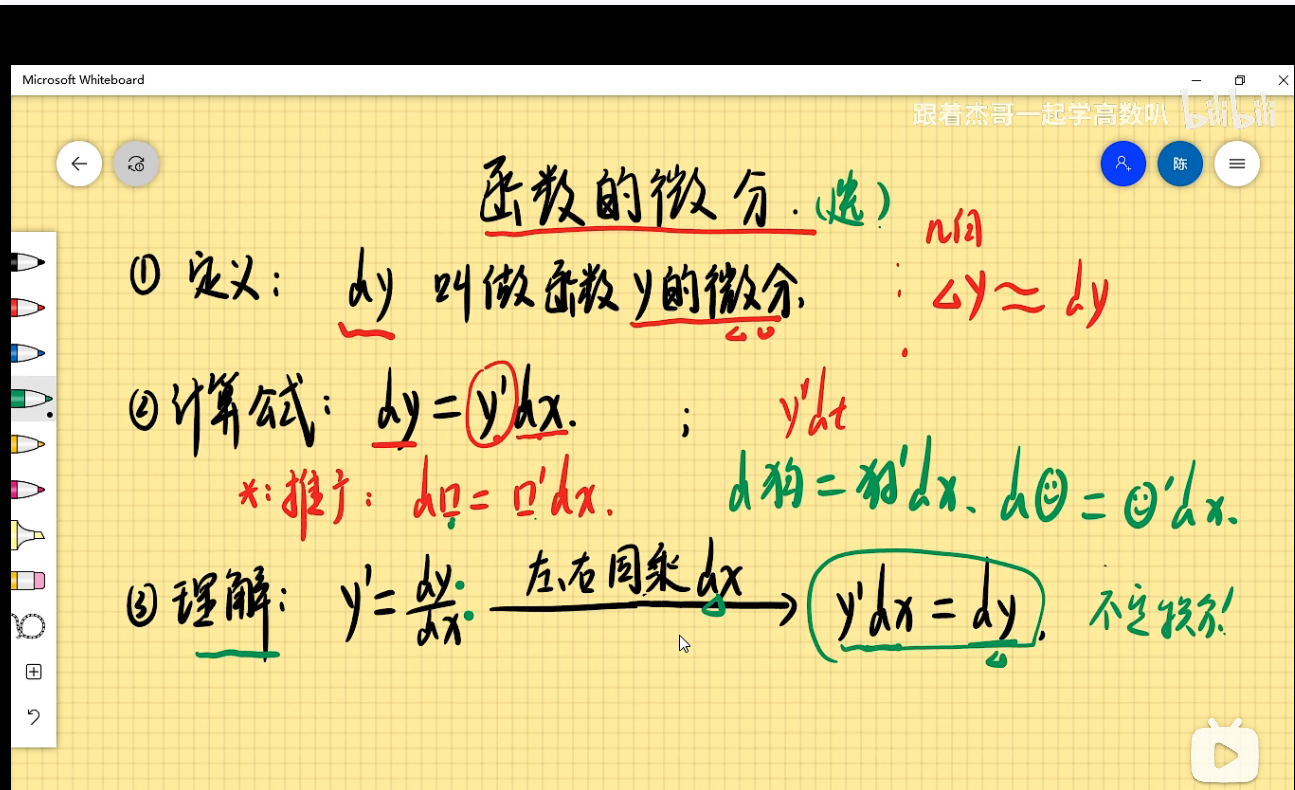 Microsoft Whiteboard
跟着杰哥一起学高数叭 bilibili
陈
函数的微分.(选)
n阶
① 定义: dy 叫做函数 y的微分,
Δy≈dy
② 计算公式: dy=y'dx. ; y'dt
*:推广: d口=口'dx.
d狗=狗'dx、d☺=☺'dx.
③ 理解: y'=dy/dx 左右同乘dx → y'dx=dy. 不定积分!